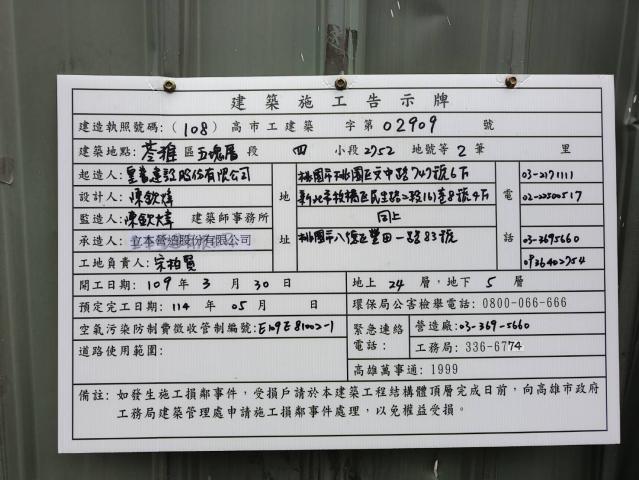 建築施工告示牌
建造執照號碼:(108)高市工建築 字第 02909 號
建築地點:苓雅區五塊厝段 四 小段2752 地號等2筆 里
起造人:皇普建設股份有限公司 地址 桃園市桃園區文中路747號6F 電話 03-2171111
設計人:陳欽煒 新北市板橋區民生路二段161巷8號4F 02-22500517
監造人:陳欽煒 建築師事務所 同上
承造人:立本營造股份有限公司 桃園市八德區豐田一路83號 03-3695660
工地負責人:宗柏賢 0936402754
開工日期:109年3月30日 地上24層,地下5層
預定完工日期:114年05月 日 環保局公害檢舉電話:0800-066-666
空氣污染防制費徵收管制編號:E109E81002-1 緊急連絡電話: 營造廠:03-369-5660
道路使用範圍: 工務局:336-6774
高雄萬事通:1999
備註:如發生施工損鄰事件,受損戶請於本建築工程結構體頂層完成日前,向高雄市政府
工務局建築管理處申請施工損鄰事件處理,以免權益受損。